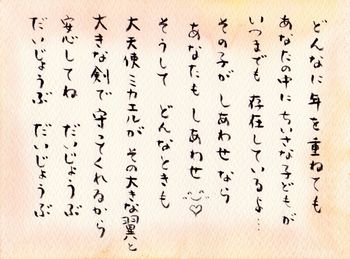 どんなに年を重ねても
あなたの中にちいさな子どもが
いつまでも 存在しているよ…
その子が しあわせなら
あなたも しあわせ
そうして どんなときも
大天使ミカエルが その大きな翼と
大きな剣で 守ってくれるから
安心してね だいじょうぶ
だいじょうぶ だいじょうぶ